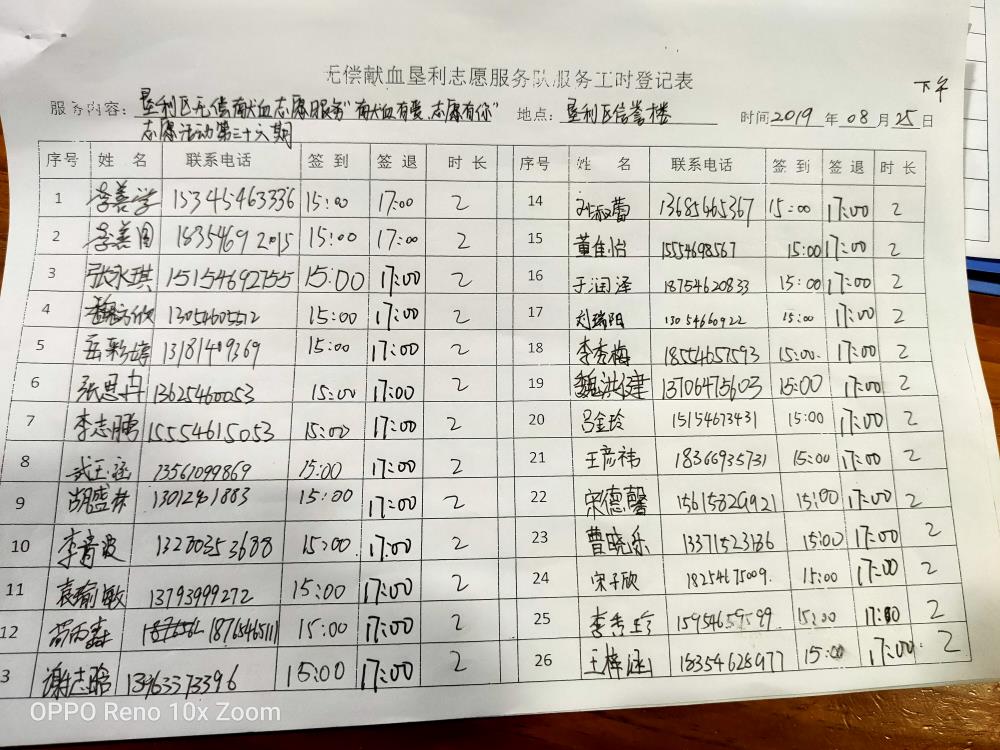 无偿献血垦利志愿服务队服务工时登记表
下午
服务内容：垦利区无偿献血志愿服务"献血有爱、志愿有你" 地点：垦利区信誉楼 时间2019年08月25日
志愿活动第三十六期
序号 姓名 联系电话 签到 签退 时长 序号 姓名 联系电话 签到 签退 时长
1 李善学 15345463336 15:00 17:00 2 14 13685465367 15:00 17:00 2
2 李善国 18354692015 15:00 17:00 2 15 董佳怡 1554698567 15:00 17:00 2
3 张永琪 15154692755 15:00 17:00 2 16 于润泽 18754620833 15:00 17:00 2
4 魏欣 13054605512 15:00 17:00 2 17 刘瑞阳 13054660922 15:00 17:00 2
5 岳彩婷 1318149369 15:00 17:00 2 18 李秀梅 18554657593 15:00 17:00 2
6 张思冉 13625460053 15:00 17:00 2 19 魏洪健 13706475603 15:00 17:00 2
7 李志鹏 15554615053 15:00 17:00 2 20 吕金玲 15154673431 15:00 17:00 2
8 武玉涵 13561099869 15:00 17:00 2 21 王彦祎 18366935731 15:00 17:00 2
9 胡盛林 1301241883 15:00 17:00 2 22 宋德馨 15615829921 15:00 17:00 2
10 李音波 13280353688 15:00 17:00 2 23 曹晓乐 13371523136 15:00 17:00 2
11 袁瑜敏 13793999272 15:00 17:00 2 24 宋子欣 18254675009. 15:00 17:00 2
12 18765465111 15:00 17:00 2 25 李秀 15954659599 15:00 17:00 2
3 谢志皓 13963373396 15:00 17:00 2 26 王梓涵 18354628977 15:00 17:00 2
OPPO Reno 10x Zoom